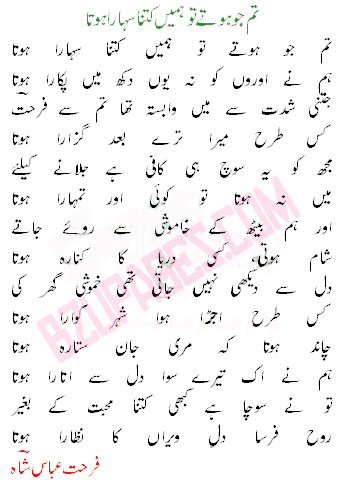 تم جو ہوتے تو ہمیں کتنا سہارا ہوتا
تم جو ہوتے تو ہمیں کتنا سہارا ہوتا
ہم نے اوروں کو نہ یوں دکھ میں پکارا ہوتا
جتنی شدت سے میں وابستہ تھا تم سے فرحتؔ
کس طرح میرا ترے بعد گزارا ہوتا
مجھ کو یہ سوچ ہی کافی ہے جلانے کیلئے
میں نہ ہوتا تو کوئی اور تمہارا ہوتا
اور ہم بیٹھ کے خاموشی سے روئے جاتے
شام ہوتی، کسی دریا کا کنارہ ہوتا
دل سے دیکھی نہیں جاتی تھی خموشی گھر کی
کس طرح اجڑا ہوا شہر گوارا ہوتا
چاند ہوتا کہ مری جان ستارہ ہوتا
ہم نے اک تیرے سوا دل سے اتارا ہوتا
تو نے سوچا ہے کبھی کتنا محبت کے بغیر
روح فرسا دلِ ویراں کا نظارا ہوتا
فرحت عباس شاہؔ
BZUPAGES.COM